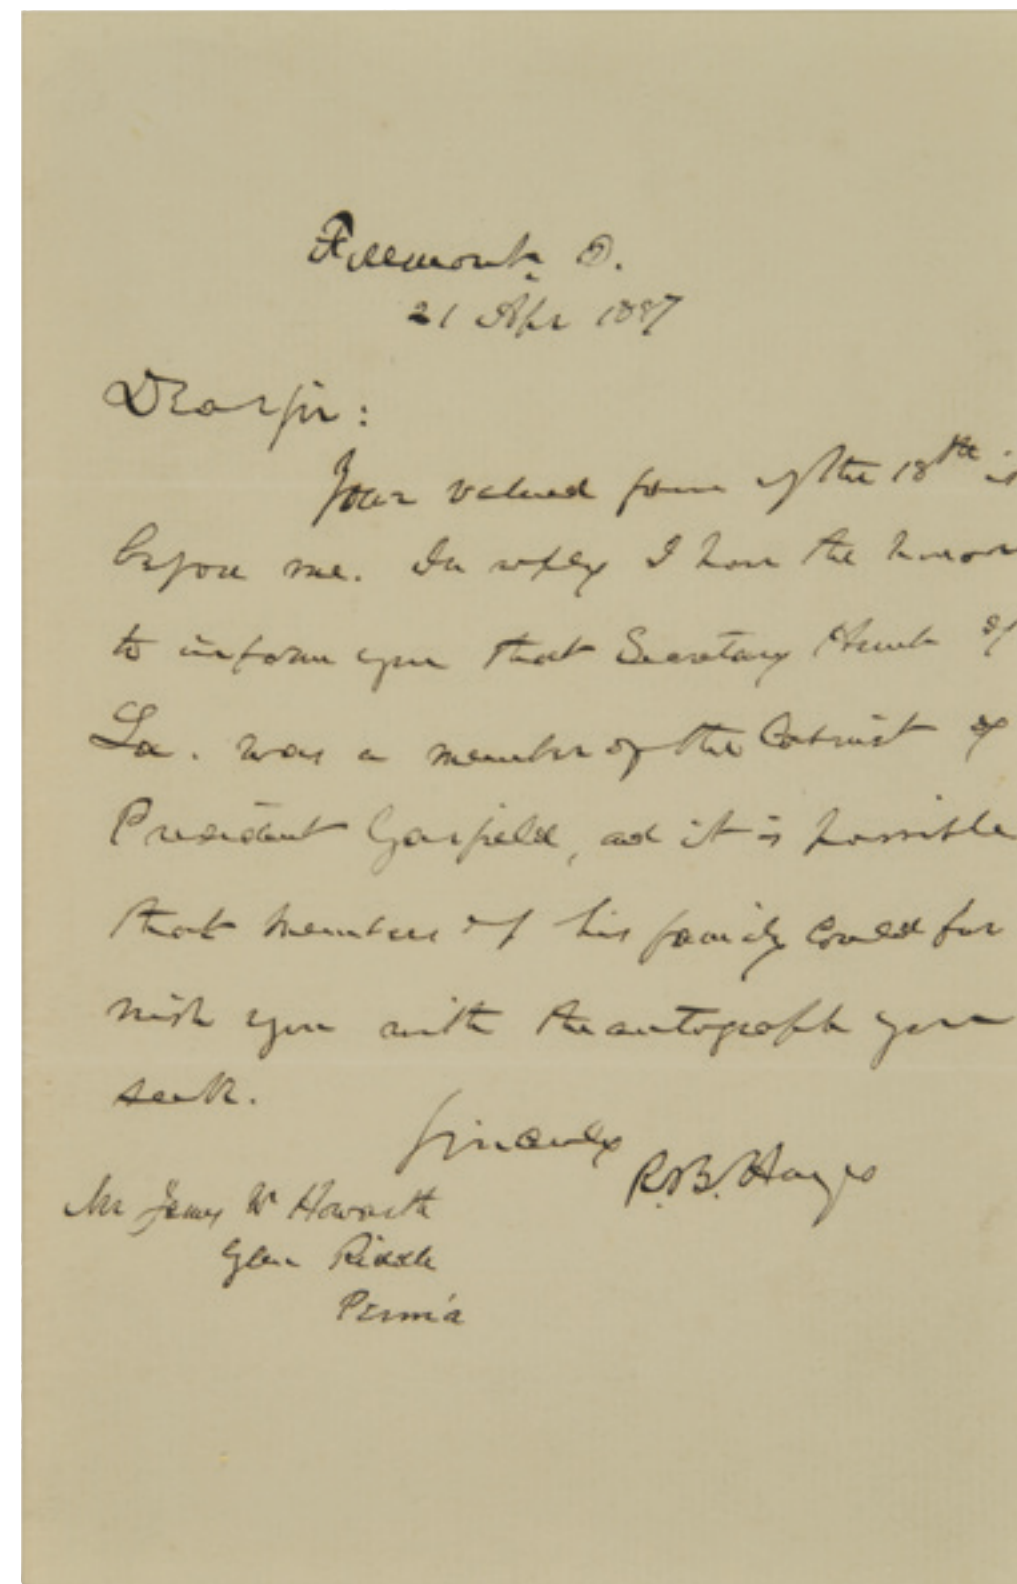 Fremont, O.
21 Apr 1887
Dear Sir:
Your valued favor of the 18th is
before me. In reply I have the honor
to inform you that Secretary Hunt of
La. was a member of the Cabinet of
President Garfield, and it is possible
that members of his family could fur
nish you with the autograph you
seek.
Sincerely
R.B. Hayes
Mr James W Howarth
Glen Riddle
Penn'a